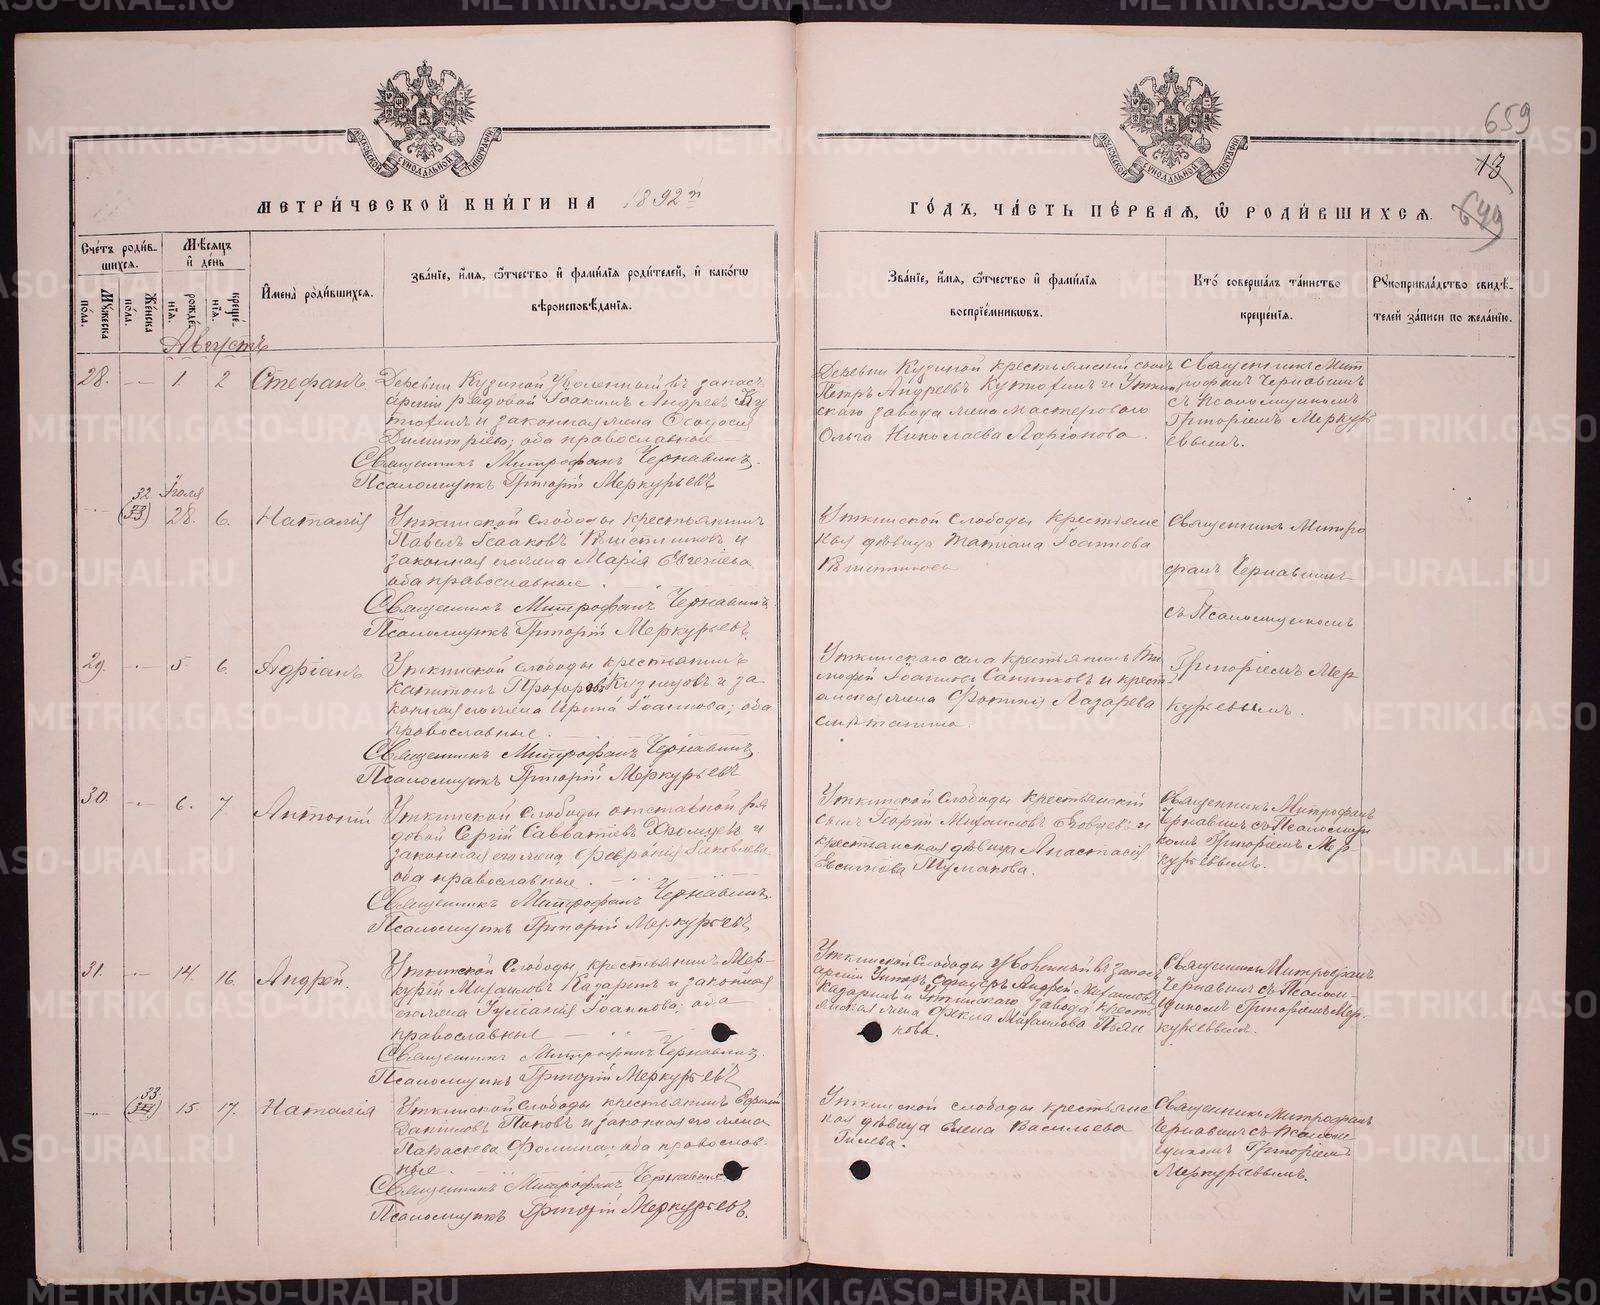 METRIKI.GASO-URAL.RU
659
13
649
МЕТРИЧЕСКОЙ КНИГИ НА 1892й
ГОДЪ, ЧАСТЬ ПЕРВАЯ, Ѿ РОДИВШИХСЯ.
Счетъ родившихся.
Мужеска пола.
Женска пола.
Мѣсяцъ и день
рожденїя.
крещенїя.
Имена родившихся.
Званїе, имя, ѿчество и фамилїя родителей, и какогѡ
вѣроисповѣданїя.
Званїе, имя, ѿчество и фамилїя
воспрїемниковъ.
Кто совершалъ таинство
крещенїя.
Рукоприкладство свидѣ-
телей записи по желанїю.
Августъ
28. 1. 2 Стефанъ
Деревни Кузиной уволенный въ запасъ
арміи рядовой Іоакимъ Андреевъ
и законная жена Ѳеодосія
Димитріева; оба православные
Священникъ Митрофанъ Чернавинъ.
Псаломщикъ Григорій Меркурьевъ
Деревни Кузиной крестьянскій сынъ
Петръ Андреевъ и Уткин-
скаго завода жена мастероваго
Ольга Николаева Ларіонова.
Священникъ Мит-
рофанъ Чернавинъ
съ Псаломщикомъ
Григоріемъ Меркурь-
евымъ.
32 Іюля
(33) 28. 6. Наталія
Уткинской слободы крестьянинъ
Павелъ Исааковъ и
законная его жена Марія Евгеніева
оба православные.
Священникъ Митрофанъ Чернавинъ.
Псаломщикъ Григорій Меркурьевъ.
Уткинской Слободы крестьянс-
кая дѣвица Татіана Іоаннова
Священникъ Митро-
фанъ Чернавинъ
съ Псаломщикомъ
Григоріемъ Мер-
курьевымъ.
29. 5 6. Адріанъ
Уткинской слободы крестьянинъ
Капитонъ Прохоровъ Кузнецовъ и за-
конная его жена Ирина Іоаннова; оба
православные.
Священникъ Митрофанъ Чернавинъ.
Псаломщикъ Григорій Меркурьевъ
Уткинскаго села крестьянинъ Ти-
мофей Іоанновъ Санниковъ и крест-
янская жена Фотинія Лазарева
30. 6. 7. Антоній
Уткинской Слободы отставной ря-
довой Сергій Савватіевъ и
законная его жена Февронія Іаковлева
оба православные.
Священникъ Митрофанъ Чернавинъ.
Псаломщикъ Григорій Меркурьевъ
Уткинской Слободы крестьянскій
сынъ Георгій Михаиловъ и
крестьянская дѣвица Анастасія
Тумакова.
Священникъ Митрофанъ
Чернавинъ съ Псаломщи-
комъ Григоріемъ Мер-
курьевымъ.
31. 14. 16. Андрей.
Уткинской Слободы крестьянинъ Мер-
курій Михаиловъ Казаринъ и законная
его жена Іуліанія Іоаннова; оба
православные
Священникъ Митрофанъ Чернавинъ.
Псаломщикъ Григорій Меркурьевъ
Уткинской Слободы уволенной въ запасъ
арміи Унтеръ Офицеръ Андрей Михаиловъ
Казаринъ и Уткинскаго завода кресть-
янская жена Ѳекла Михаилова Пьян-
кова.
Священникъ Митрофанъ
Чернавинъ съ Псалом-
щикомъ Григоріемъ Мер-
курьевымъ.
33
15. 17. Наталія
Уткинской Слободы крестьянинъ Ефремъ
Даниловъ Поповъ и законная его жена
Параскева Фомина; оба православ-
ные.
Священникъ Митрофанъ Чернавинъ
Псаломщикъ Григорій Меркурьевъ.
Уткинской слободы крестьянс-
кая дѣвица Елена Васильева
Гилева.
Священникъ Митрофанъ
Чернавинъ съ Псалом-
щикомъ Григоріемъ
Меркурьевымъ.